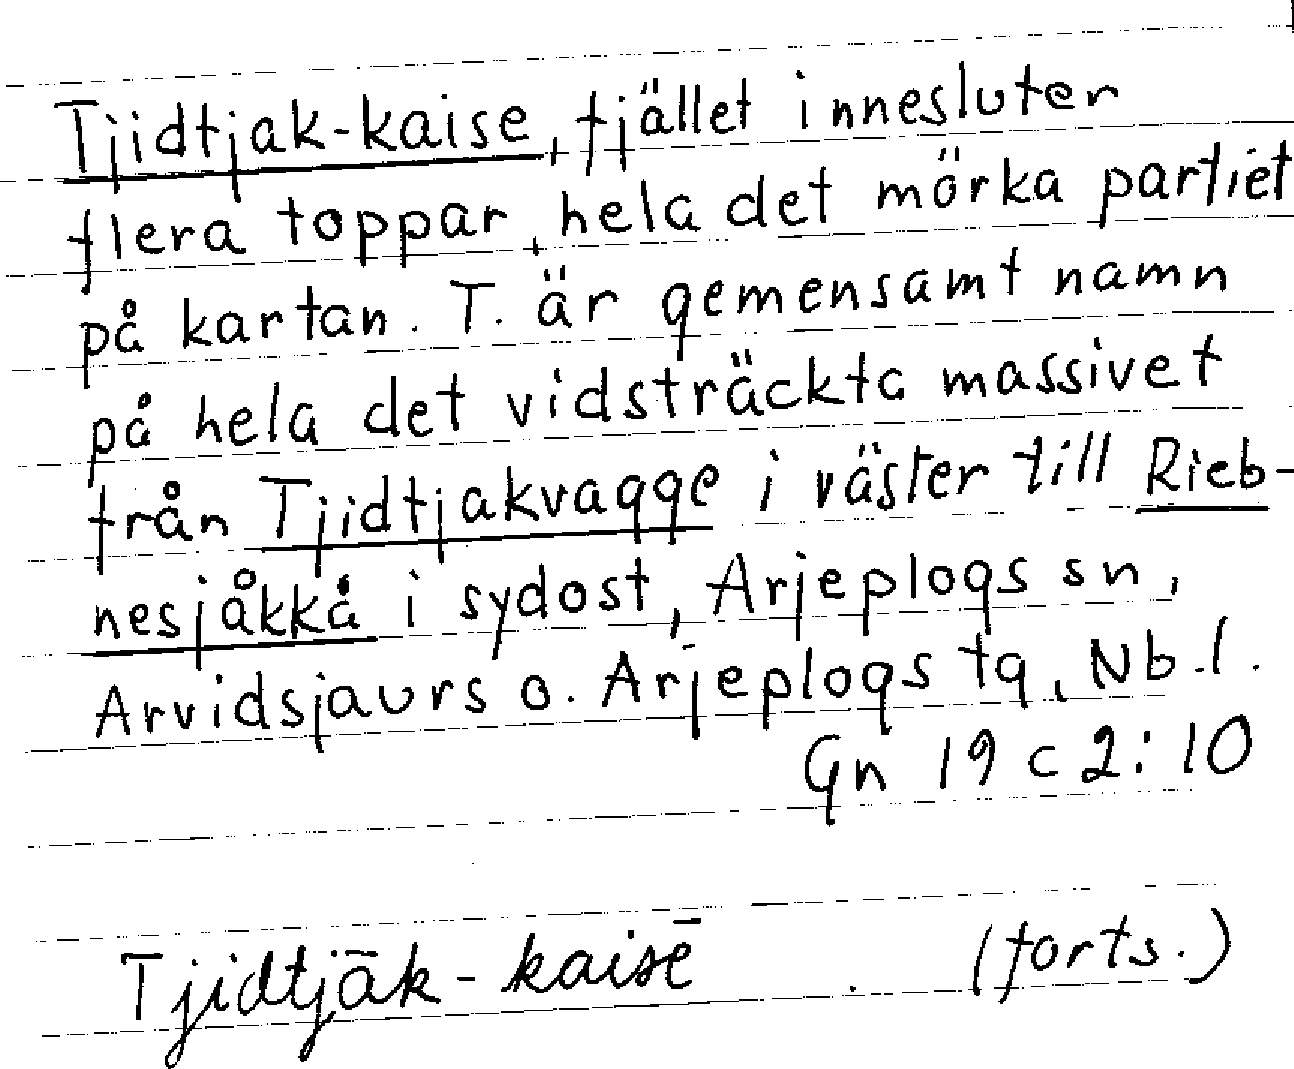 Tjidtjak-kaise, fjället innesluter
flera toppar, hela det mörka partiet
på kartan. T. är gemensamt namn
på hela det vidsträckta massivet
från Tjidtjakvagge i väster till Rieb-
nesjåkkå i sydost, Arjeplogs sn,
Arvidsjaurs o. Arjeplogs tg, Nb.l.
Gn 19 c 2:10
Tjidtjāk-kaisē (forts.)